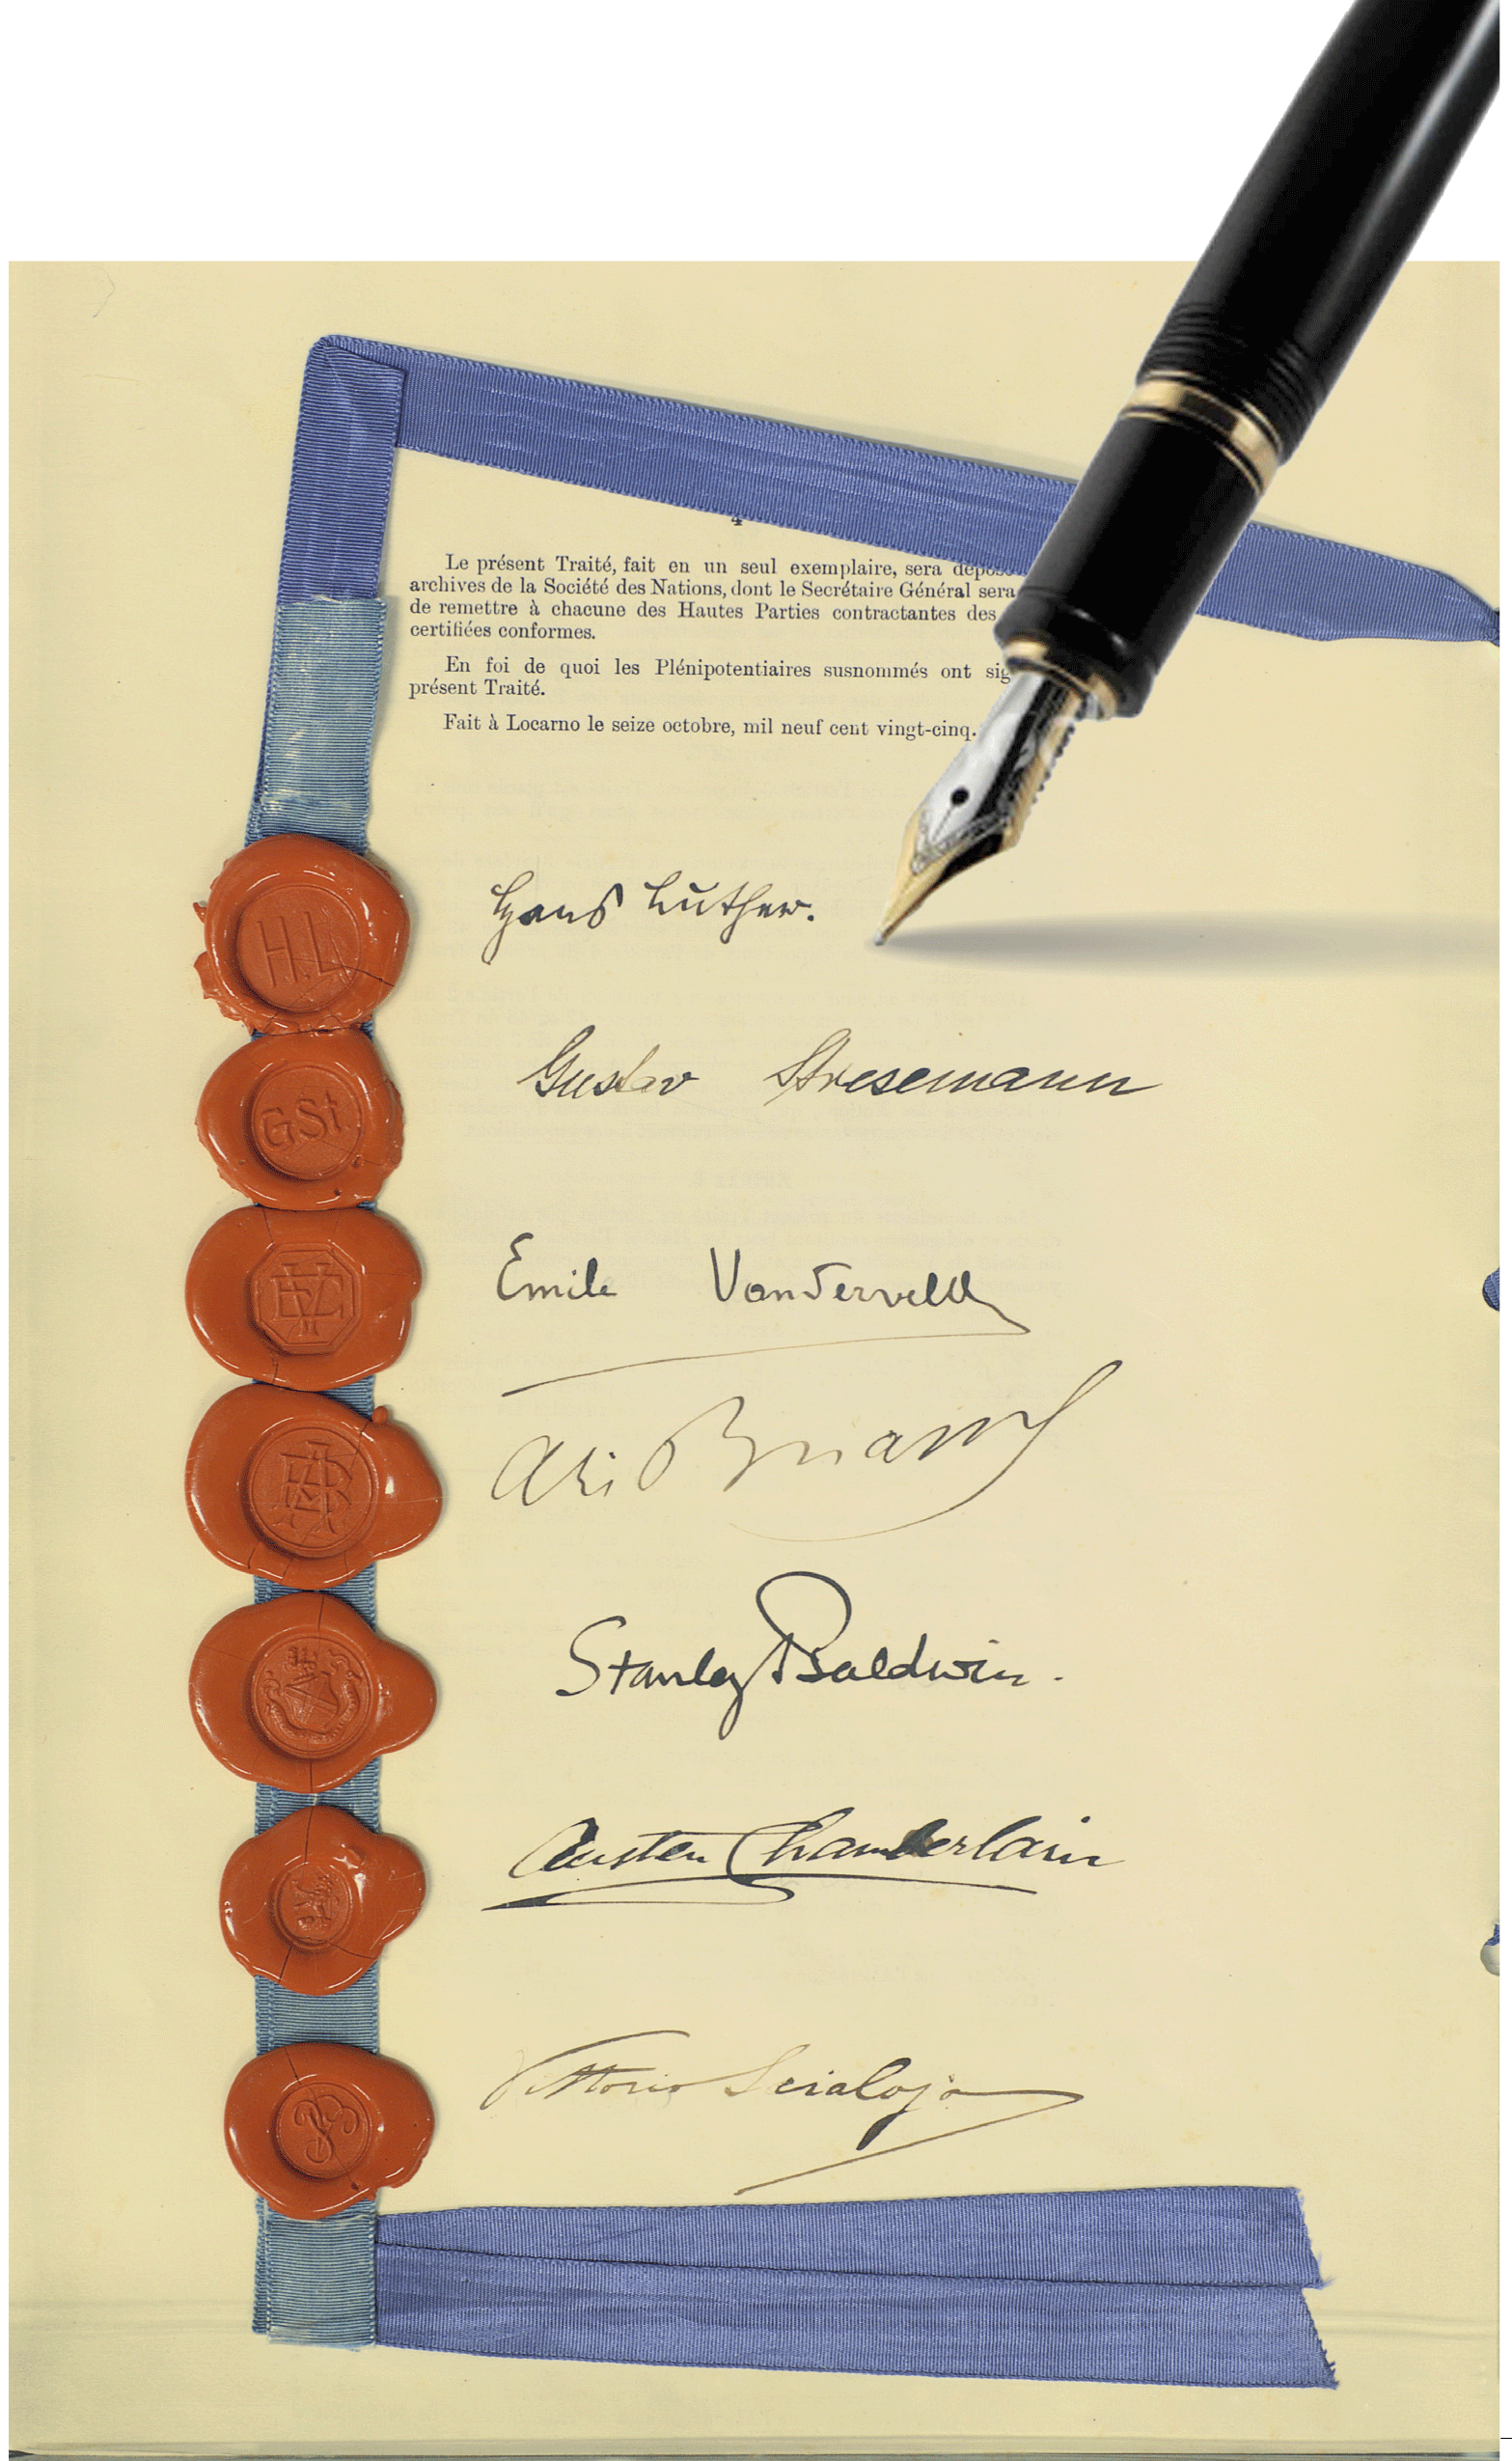 4
Le présent Traité, fait en un seul exemplaire, sera déposé
archives de la Société des Nations, dont le Secrétaire Général sera
de remettre à chacune des Hautes Parties contractantes des
certifiées conformes.
En foi de quoi les Plénipotentiaires susnommés ont sig
présent Traité.
Fait à Locarno le seize octobre, mil neuf cent vingt-cinq.
H.L
Hans Luther.
GSt
Gustav Stresemann
Emile Vandervelde
Ari Briand
Stanley Baldwin.
Austen Chamberlain
Vittorio Scialoja